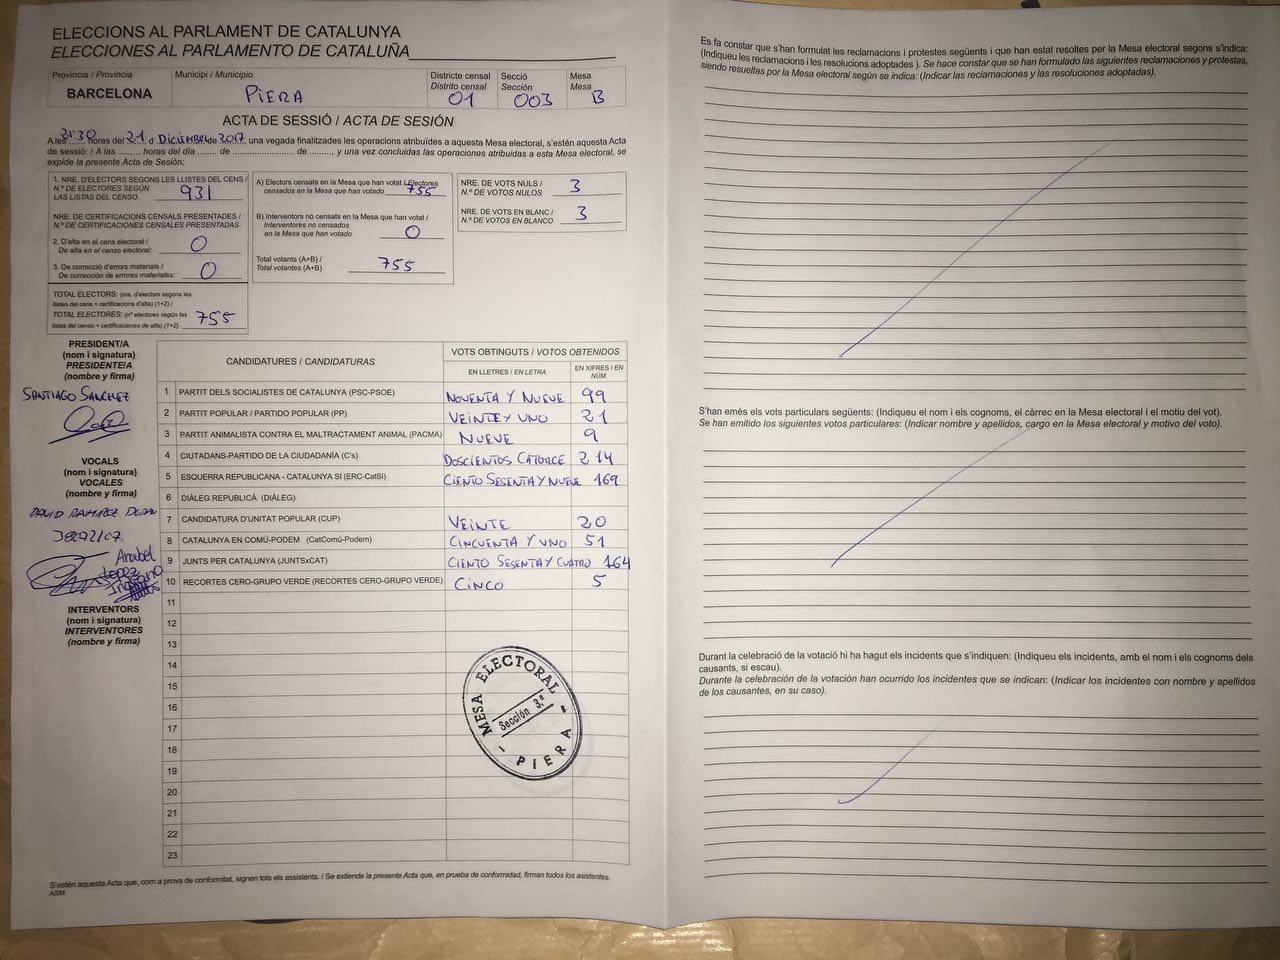 ELECCIONS AL PARLAMENT DE CATALUNYA
ELECCIONES AL PARLAMENTO DE CATALUÑA
Província / Provincia Municipi / Municipio Districte censal Secció Mesa
Distrito censal Sección Mesa
BARCELONA PIERA 01 003 B
ACTA DE SESSIÓ / ACTA DE SESIÓN
A les 21:30 hores del 21 d DICIEMBRE de 2017, una vegada finalitzades les operacions atribuïdes a aquesta Mesa electoral, s'estén aquesta Acta
de sessió: / A las ......... horas del día ....... de ...................... de ........, y una vez concluidas las operaciones atribuidas a esta Mesa electoral, se
expide la presente Acta de Sesión:
1. NRE. D'ELECTORS SEGONS LES LLISTES DEL CENS /
N.º DE ELECTORES SEGÚN
LAS LISTAS DEL CENSO 931
NRE. DE CERTIFICACIONS CENSALS PRESENTADES /
N.º DE CERTIFICACIONES CENSALES PRESENTADAS
2. D'alta en el cens electoral /
De alta en el censo electoral: 0
3. De correcció d'errors materials /
De corrección de errores materiales: 0
TOTAL ELECTORS: (nre. d'electors segons les
llistes del cens + certificacions d'alta) (1+2) /
TOTAL ELECTORES: (nº electores según las
listas del censo + certificaciones de alta) (1+2) 755
A) Electors censats en la Mesa que han votat / Electores
censados en la Mesa que han votado 755
B) Interventors no censats en la Mesa que han votat /
Interventores no censados
en la Mesa que han votado 0
Total votants (A+B) /
Total votantes (A+B) 755
NRE. DE VOTS NULS /
N.º DE VOTOS NULOS 3
NRE. DE VOTS EN BLANC /
N.º DE VOTOS EN BLANCO 3
PRESIDENT/A
(nom i signatura)
PRESIDENTE/A
(nombre y firma)
SANTIAGO SANCHEZ
VOCALS
(nom i signatura)
VOCALES
(nombre y firma)
DAVID RAMIREZ
Anabel
Lopez
INTERVENTORS
(nom i signatura)
INTERVENTORES
(nombre y firma)
CANDIDATURES / CANDIDATURAS VOTS OBTINGUTS / VOTOS OBTENIDOS
EN LLETRES / EN LETRA EN XIFRES / EN NÚM.
1 PARTIT DELS SOCIALISTES DE CATALUNYA (PSC-PSOE) NOVENTA Y NUEVE 99
2 PARTIT POPULAR / PARTIDO POPULAR (PP) VEINTE Y UNO 21
3 PARTIT ANIMALISTA CONTRA EL MALTRACTAMENT ANIMAL (PACMA) NUEVE 9
4 CIUTADANS-PARTIDO DE LA CIUDADANÍA (C's) DOSCIENTOS CATORCE 214
5 ESQUERRA REPUBLICANA - CATALUNYA SI (ERC-CatSí) CIENTO SESENTA Y NUEVE 169
6 DIÀLEG REPUBLICÀ (DIÀLEG)
7 CANDIDATURA D'UNITAT POPULAR (CUP) VEINTE 20
8 CATALUNYA EN COMÚ-PODEM (CatComú-Podem) CINCUENTA Y UNO 51
9 JUNTS PER CATALUNYA (JUNTSxCAT) CIENTO SESENTA Y CUATRO 164
10 RECORTES CERO-GRUPO VERDE (RECORTES CERO-GRUPO VERDE) CINCO 5
11
12
13
14
15
16
17
18
19
20
21
22
23
MESA ELECTORAL
Sección 3.ª
- PIERA -
S'estén aquesta Acta que, com a prova de conformitat, signen tots els assistents. / Se extiende la presente Acta que, en prueba de conformidad, firman todos los asistentes.
ASM
Es fa constar que s'han formulat les reclamacions i protestes següents i que han estat resoltes per la Mesa electoral segons s'indica:
(Indiqueu les reclamacions i les resolucions adoptades ). Se hace constar que se han formulado las siguientes reclamaciones y protestas,
siendo resueltas por la Mesa electoral según se indica: (Indicar las reclamaciones y las resoluciones adoptadas).
S'han emès els vots particulars següents: (Indiqueu el nom i els cognoms, el càrrec en la Mesa electoral i el motiu del vot).
Se han emitido los siguientes votos particulares: (Indicar nombre y apellidos, cargo en la Mesa electoral y motivo del voto).
Durant la celebració de la votació hi ha hagut els incidents que s'indiquen: (Indiqueu els incidents, amb el nom i els cognoms dels
causants, si escau).
Durante la celebración de la votación han ocurrido los incidentes que se indican: (Indicar los incidentes con nombre y apellidos
de los causantes, en su caso).